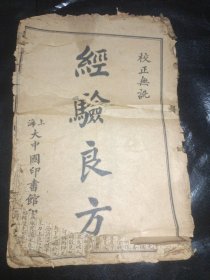 校正無訛
經驗良方
上海大中國印書館